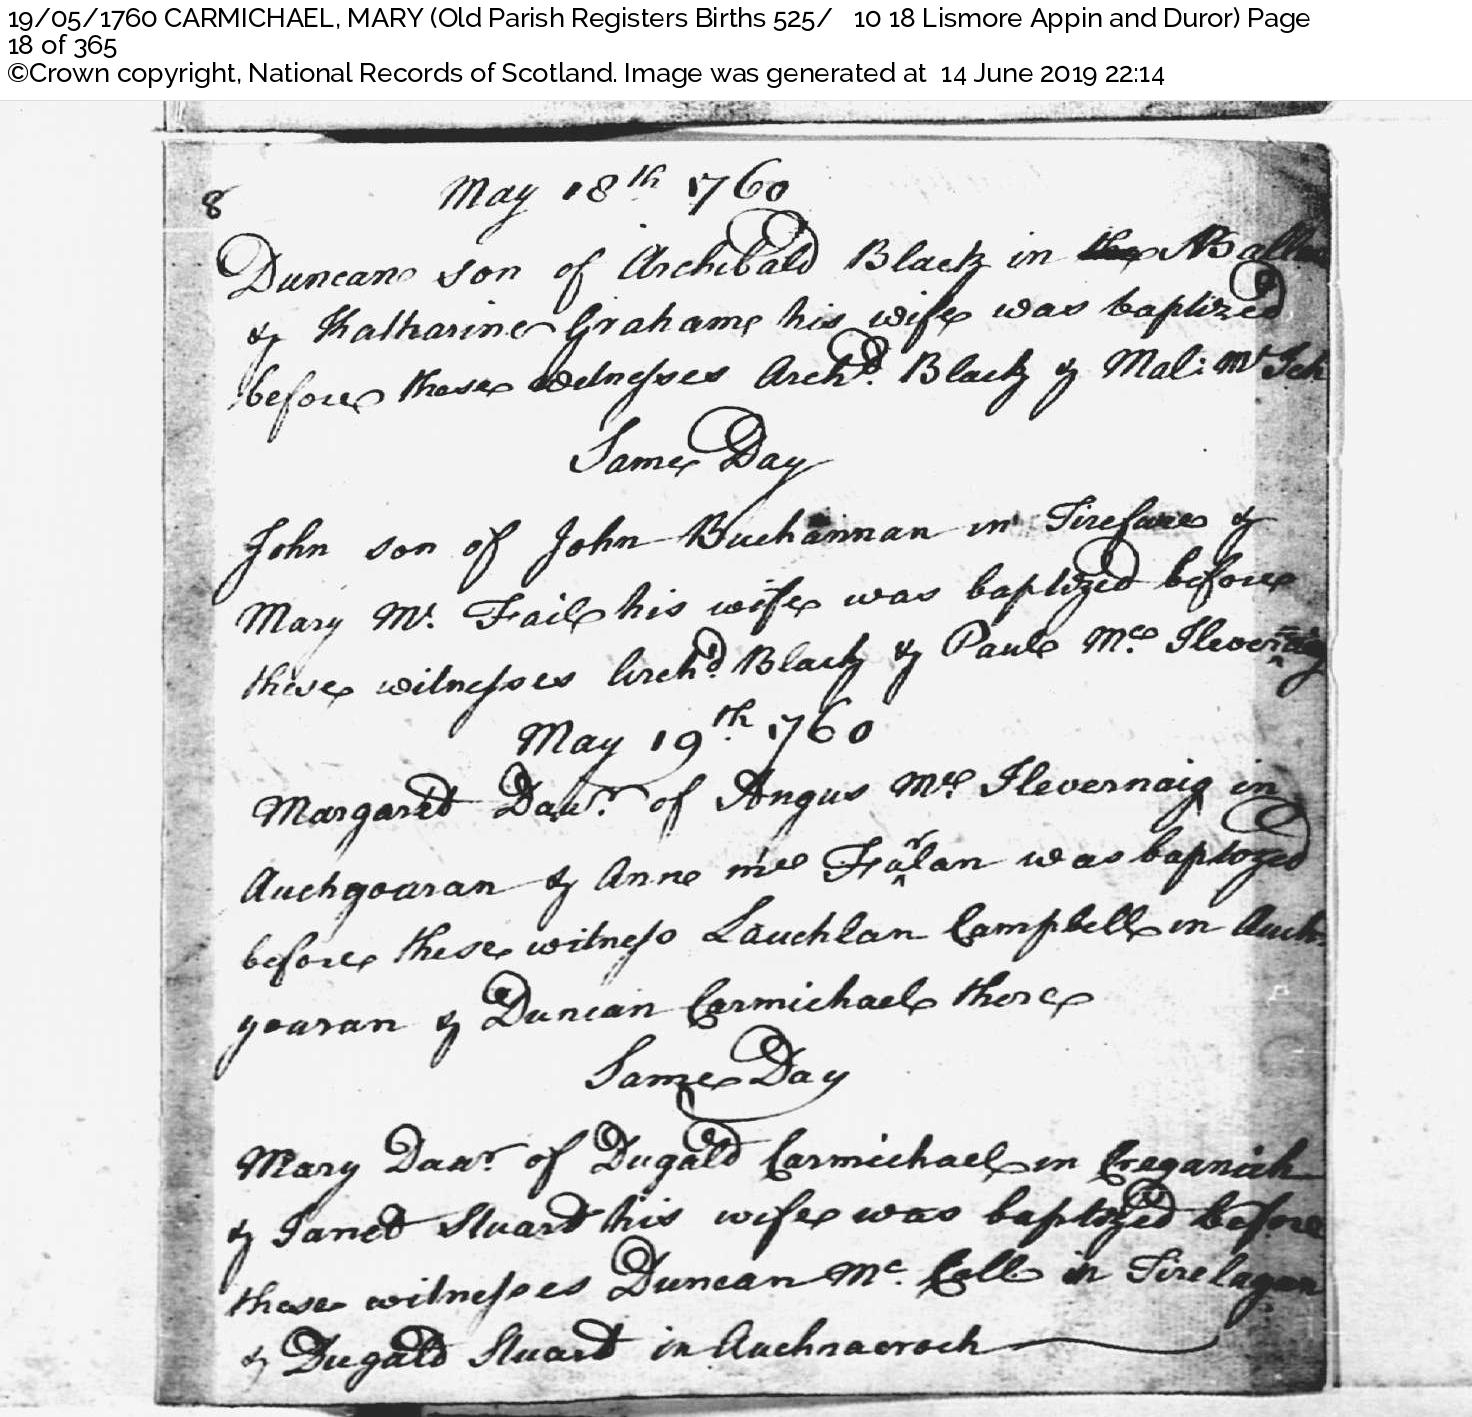 19/05/1760 CARMICHAEL, MARY (Old Parish Registers Births 525/   10 18 Lismore Appin and Duror) Page
18 of 365
©Crown copyright, National Records of Scotland. Image was generated at  14 June 2019 22:14
8
May 18th 1760
Duncan son of Archibald Black in
& Katharine Grahame his wife was baptized
before these witnesses Archd. Black & Mal:
Same Day
John son of John Buchannan in Tirefure &
Mary Mc. Fail his wife was baptized before
these witnesses Archd. Black & Paul Mc. Ilevernaig
May 19th 1760
Margaret Dawr. of Angus Mc. Ilevernaig in
Auchgouran & Anne mc Farlan was baptozed
before these witness Lauchlan Campbell in Auch-
gouran & Duncan Carmichael there
Same Day
Mary Dawr. of Dugald Carmichael in Creganich
& Janet Stuart his wife was baptized before
these witnesses Duncan Mc. Coll in Tirelagan
& Dugald Stuart in Auchnacroch